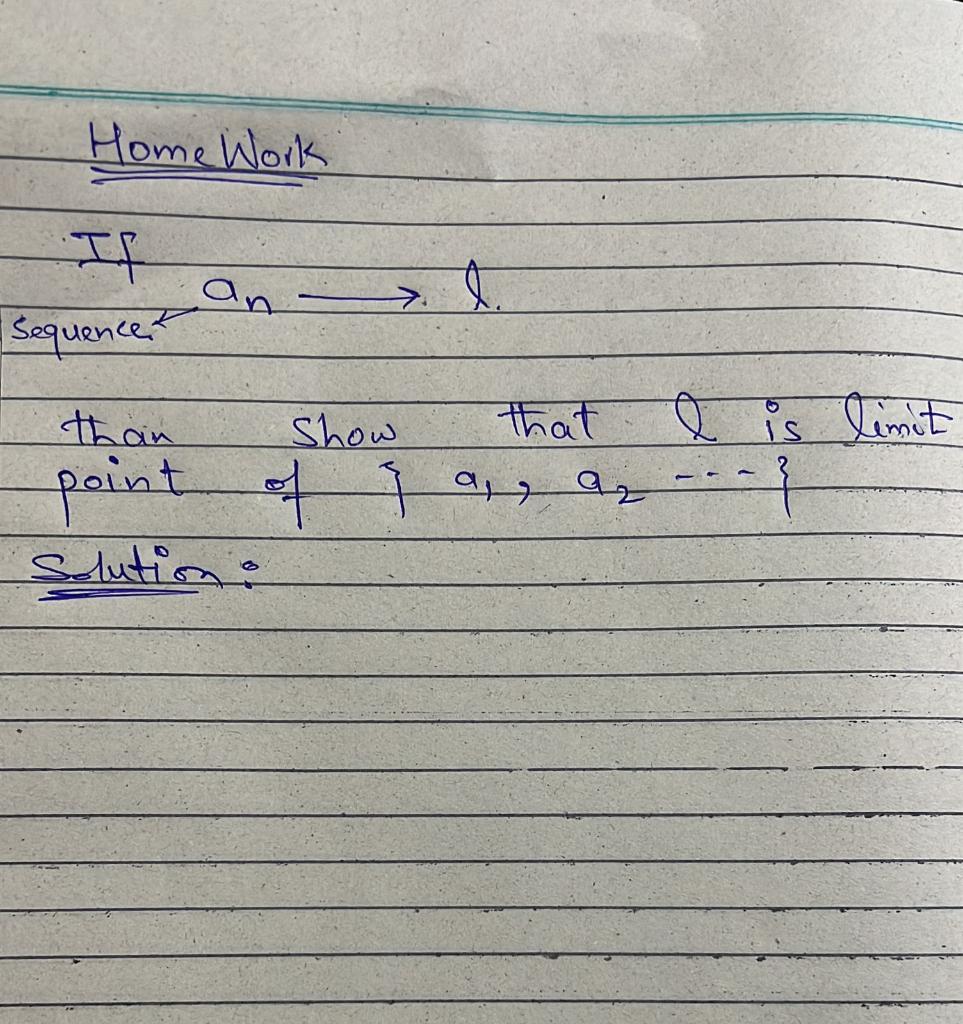 Home Work
If
an ⟶ l.
Sequence
than show that l is limit
point of { a1, a2 ---- }
Solution: